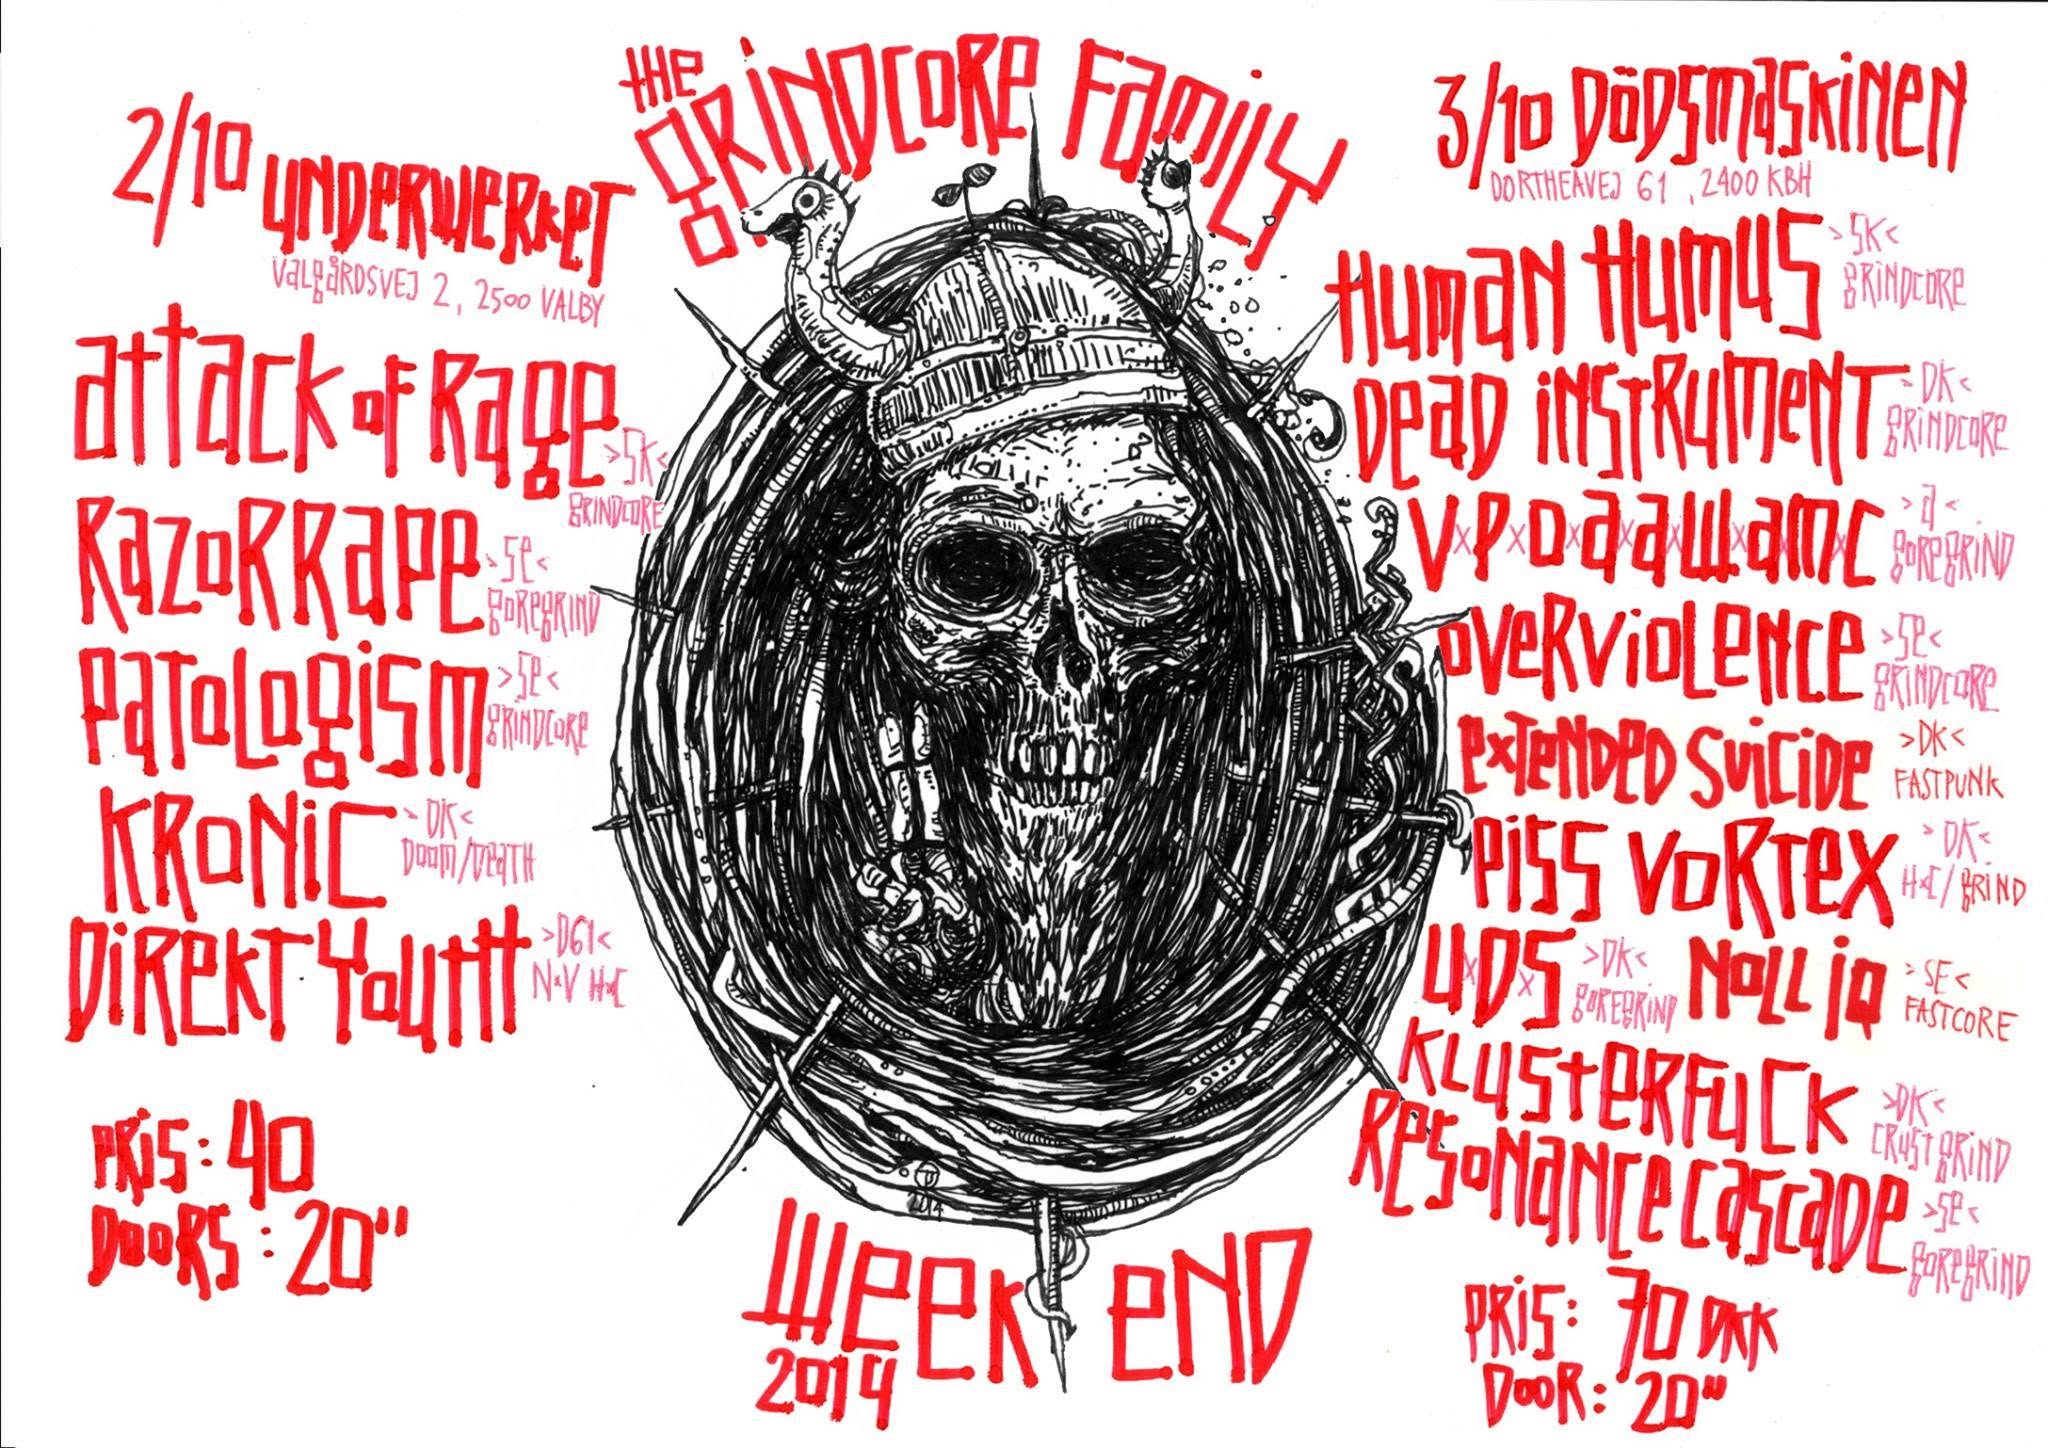 the GRINDCORE FAMILY
2/10 UNDERWERKET
VALGÅRDSVEJ 2, 2500 VALBY
ATTACK OF RAGE >SK<
GRINDCORE
RAZORRAPE >SE<
GOREGRIND
PATOLOGISM >SE<
GRINDCORE
KRONIC >DK<
DOOM/DEATH
DIREKT YOUTH >D61<
NxV HxC
PRIS: 40
DOORS: 20"
3/10 DÖDSMASKINEN
DORTHEAVEJ 61, 2400 KBH
HUMAN HUMUS >SK<
GRINDCORE
DEAD INSTRUMENT >DK<
GRINDCORE
VxPxOxAxAxWxAxMxC >A<
GOREGRIND
OVERVIOLENCE >SE<
GRINDCORE
EXTENDED SUICIDE >DK<
FASTPUNK
PISS VORTEX >DK<
HxC/GRIND
UxDxS >DK< GOREGRIND
NOLL IQ >SE<
FASTCORE
KLUSTERFUCK >DK<
CRUSTGRIND
RESONANCE CASCADE >SE<
GOREGRIND
PRIS: 70 DKK
DOOR: 20"
2014
WEEKEND
2014